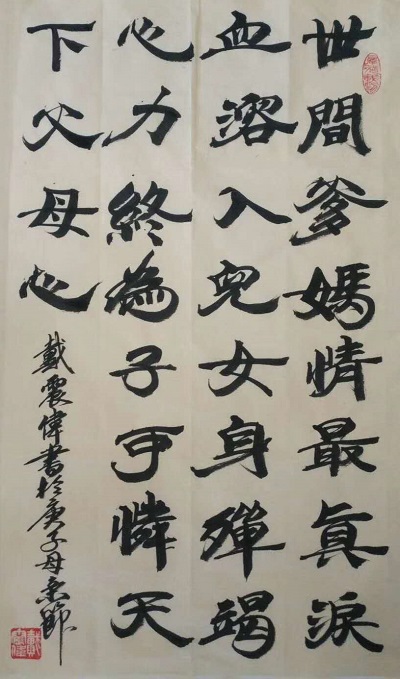 世間爹媽情最真淚
血溶入兒女身殫竭
心力終為子可憐天
下父母心
戴震偉書於庚子母亲節